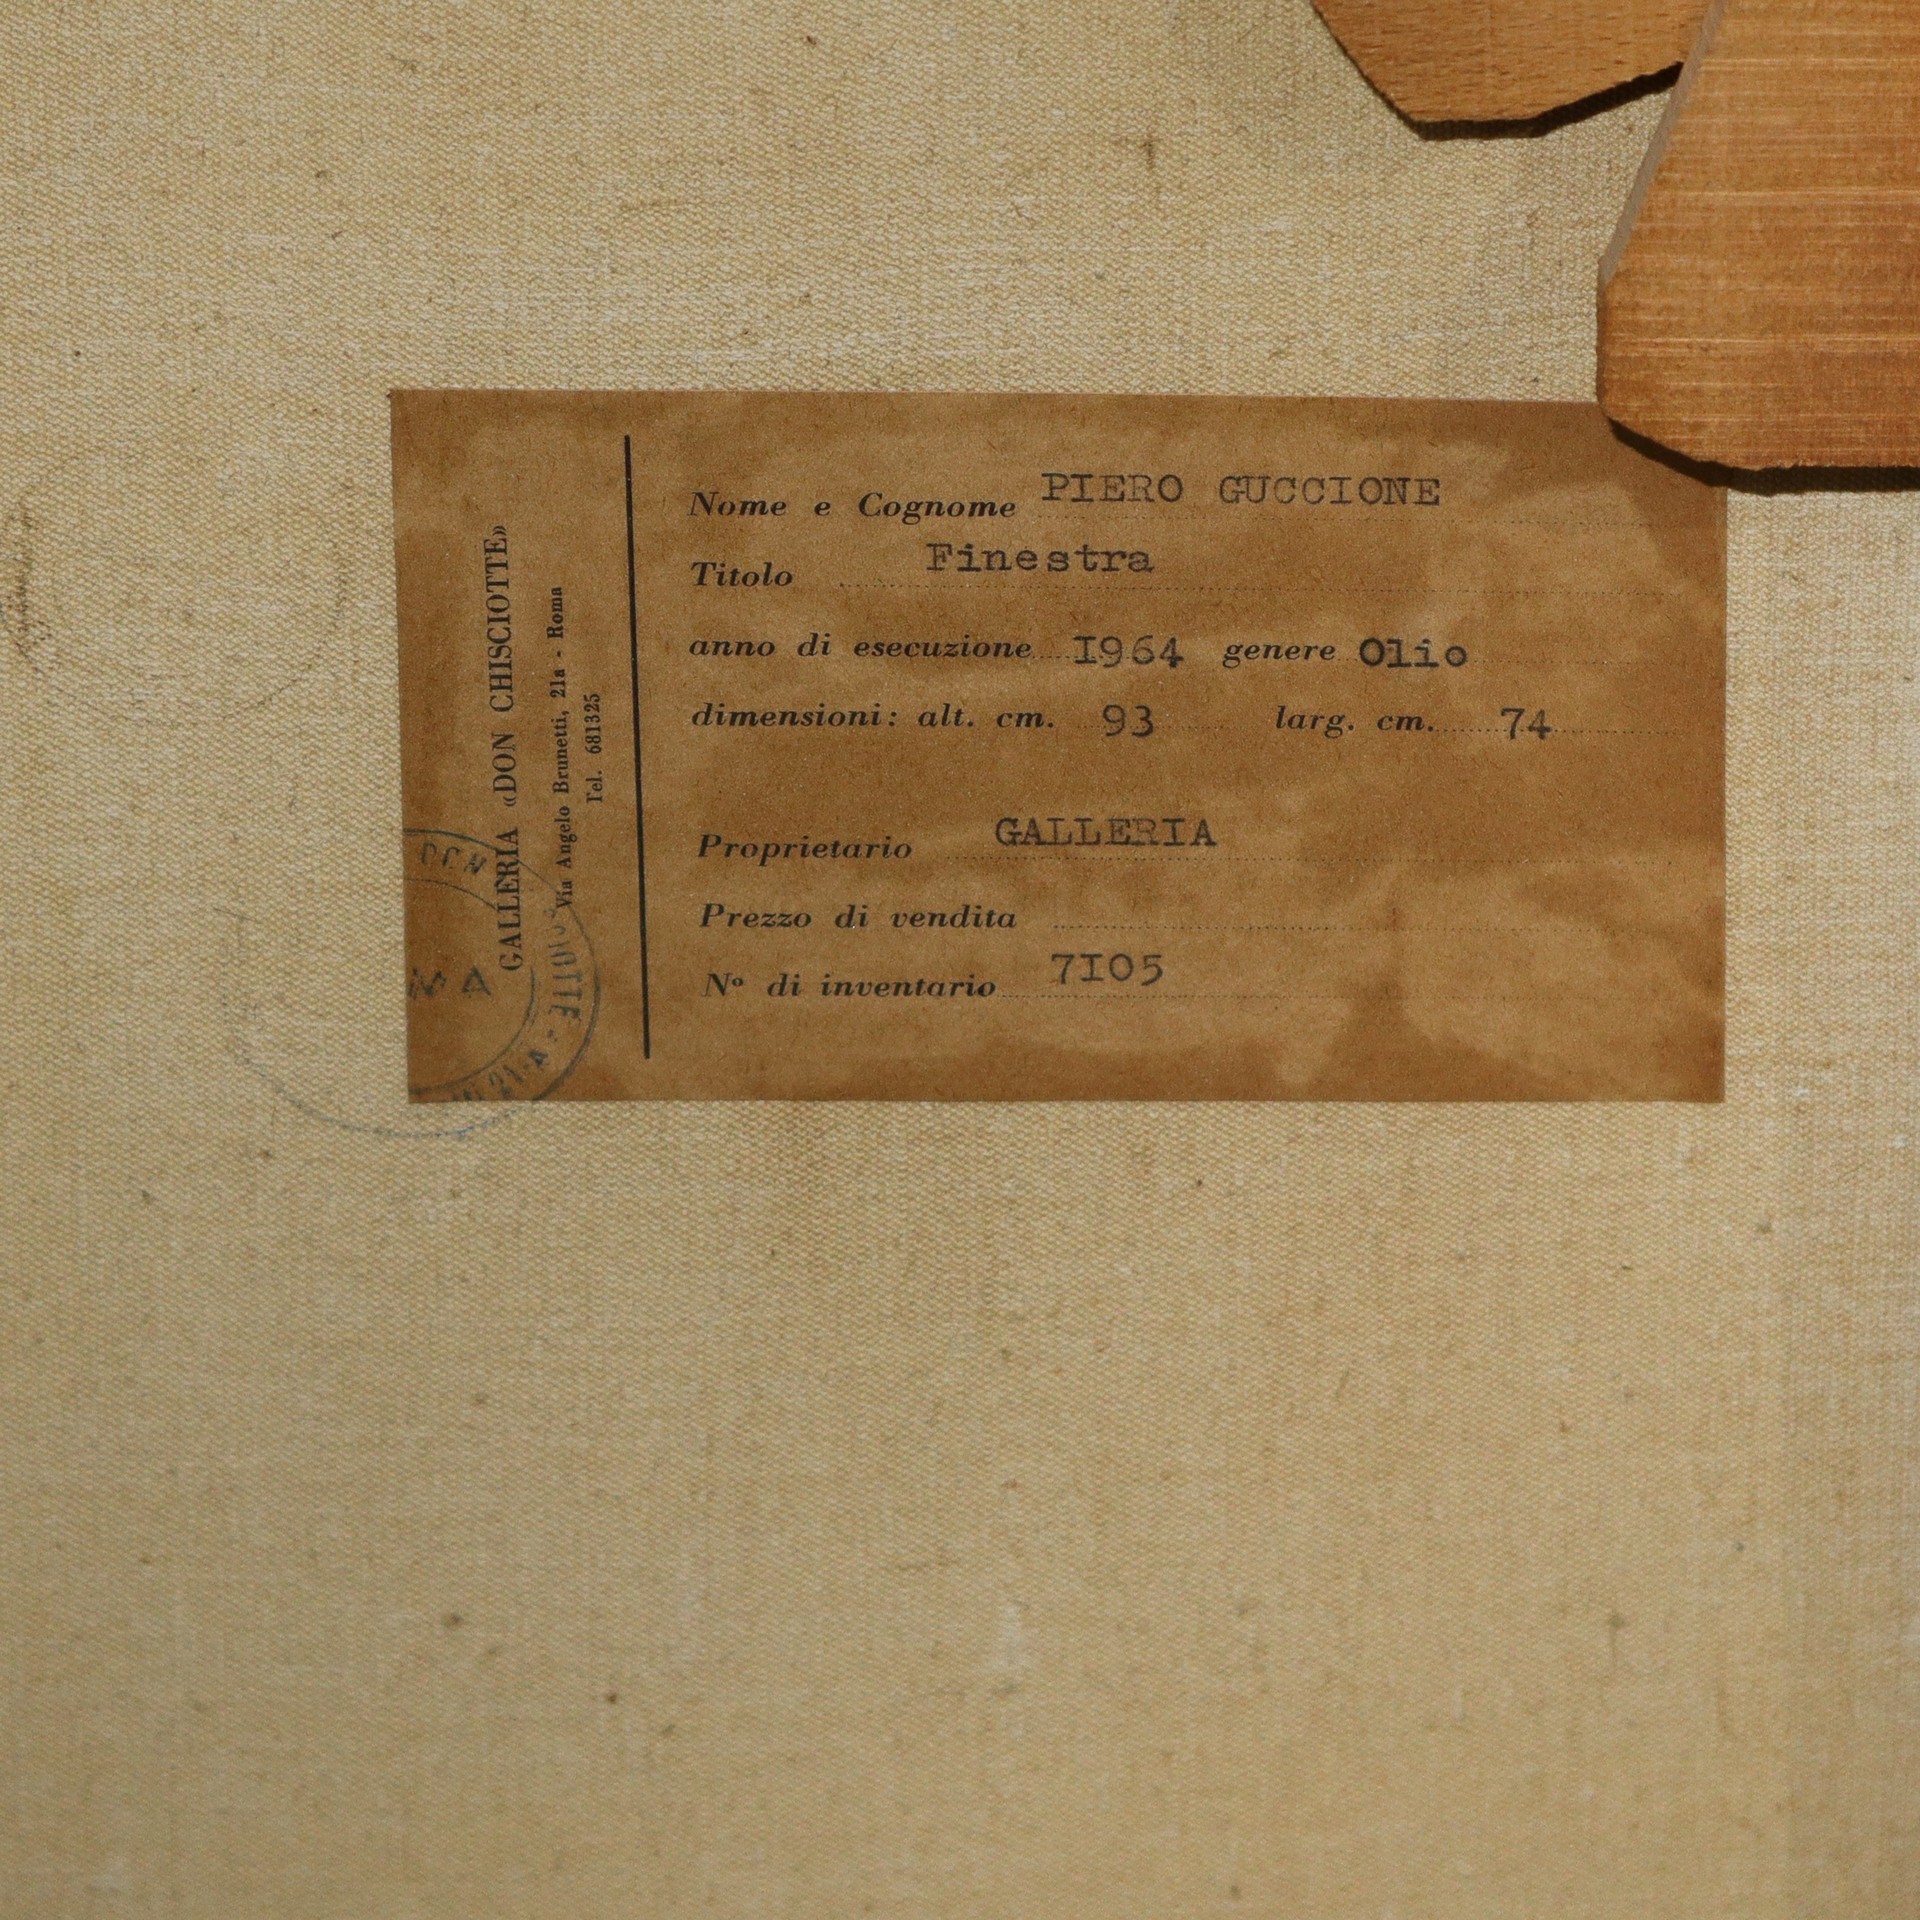 GALLERIA «DON CHISCIOTTE»
Via Angelo Brunetti, 21a - Roma
Tel. 681325
Nome e Cognome PIERO GUCCIONE
Titolo Finestra
anno di esecuzione I964 genere Olio
dimensioni: alt. cm. 93 larg. cm. 74
Proprietario GALLERIA
Prezzo di vendita
N° di inventario 7I05